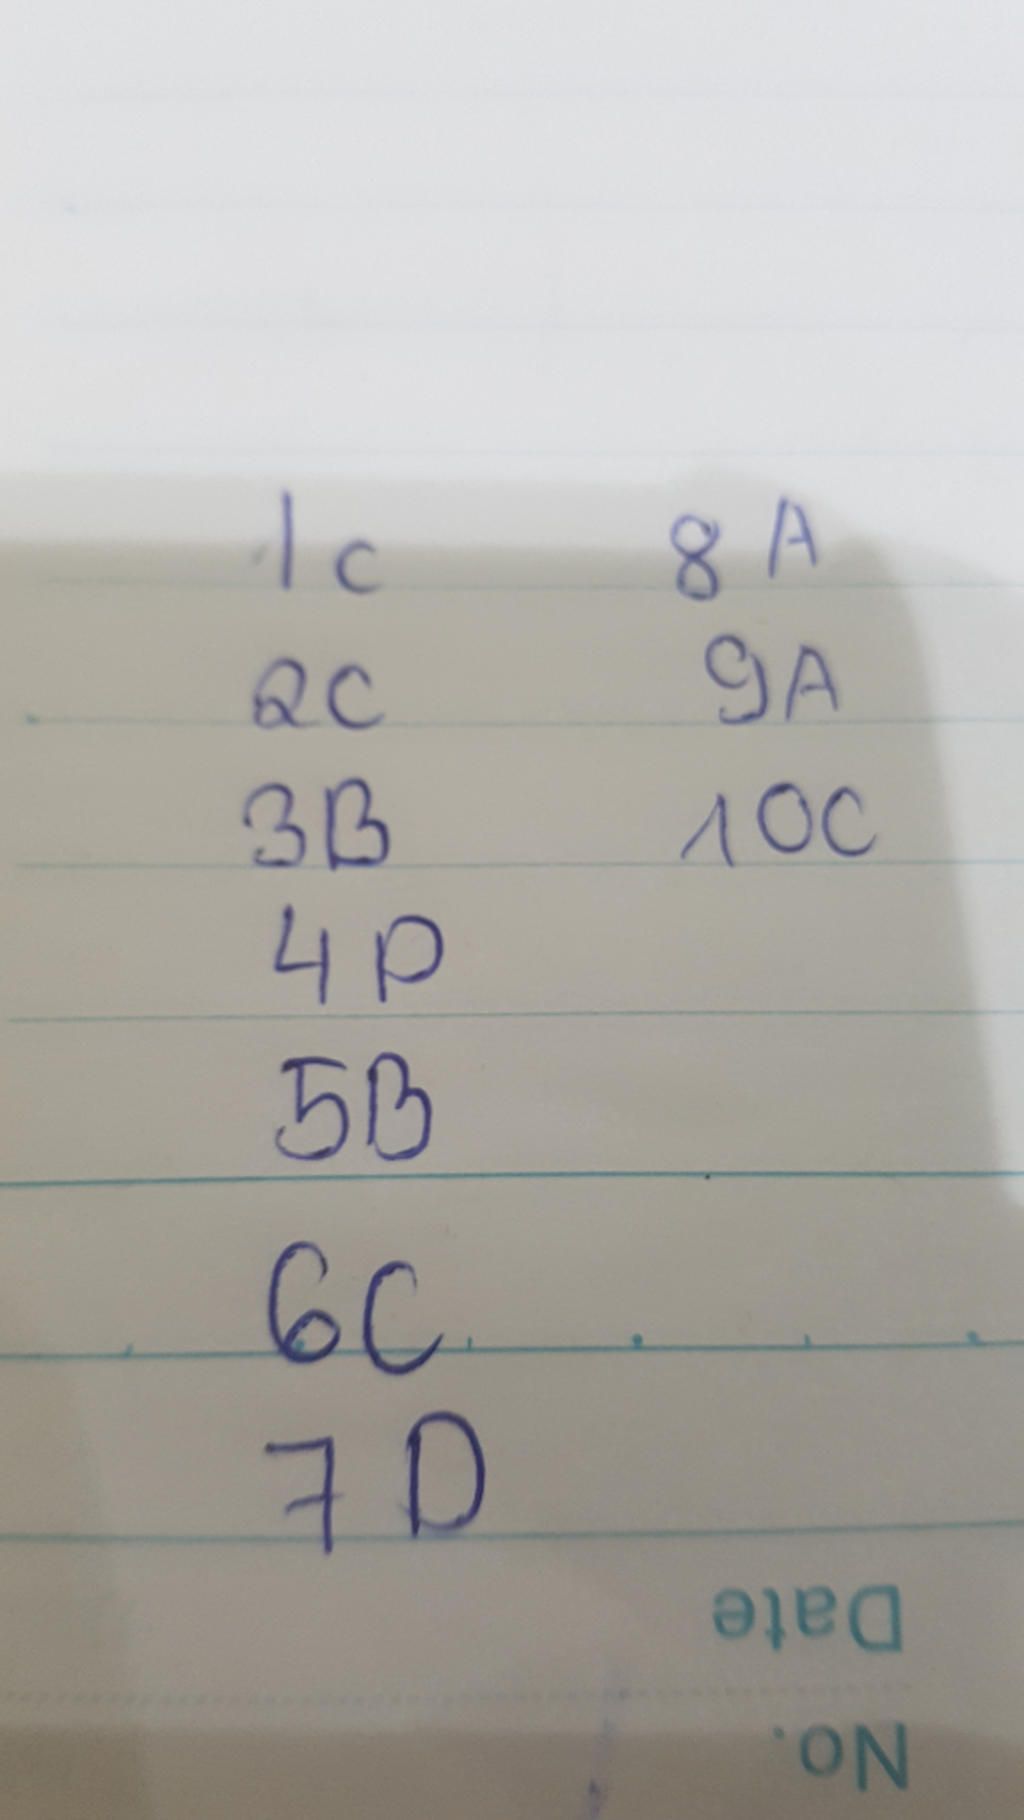 1c
2C
3B
4D
5B
6C
7D
8A
9A
10C
Date
No.